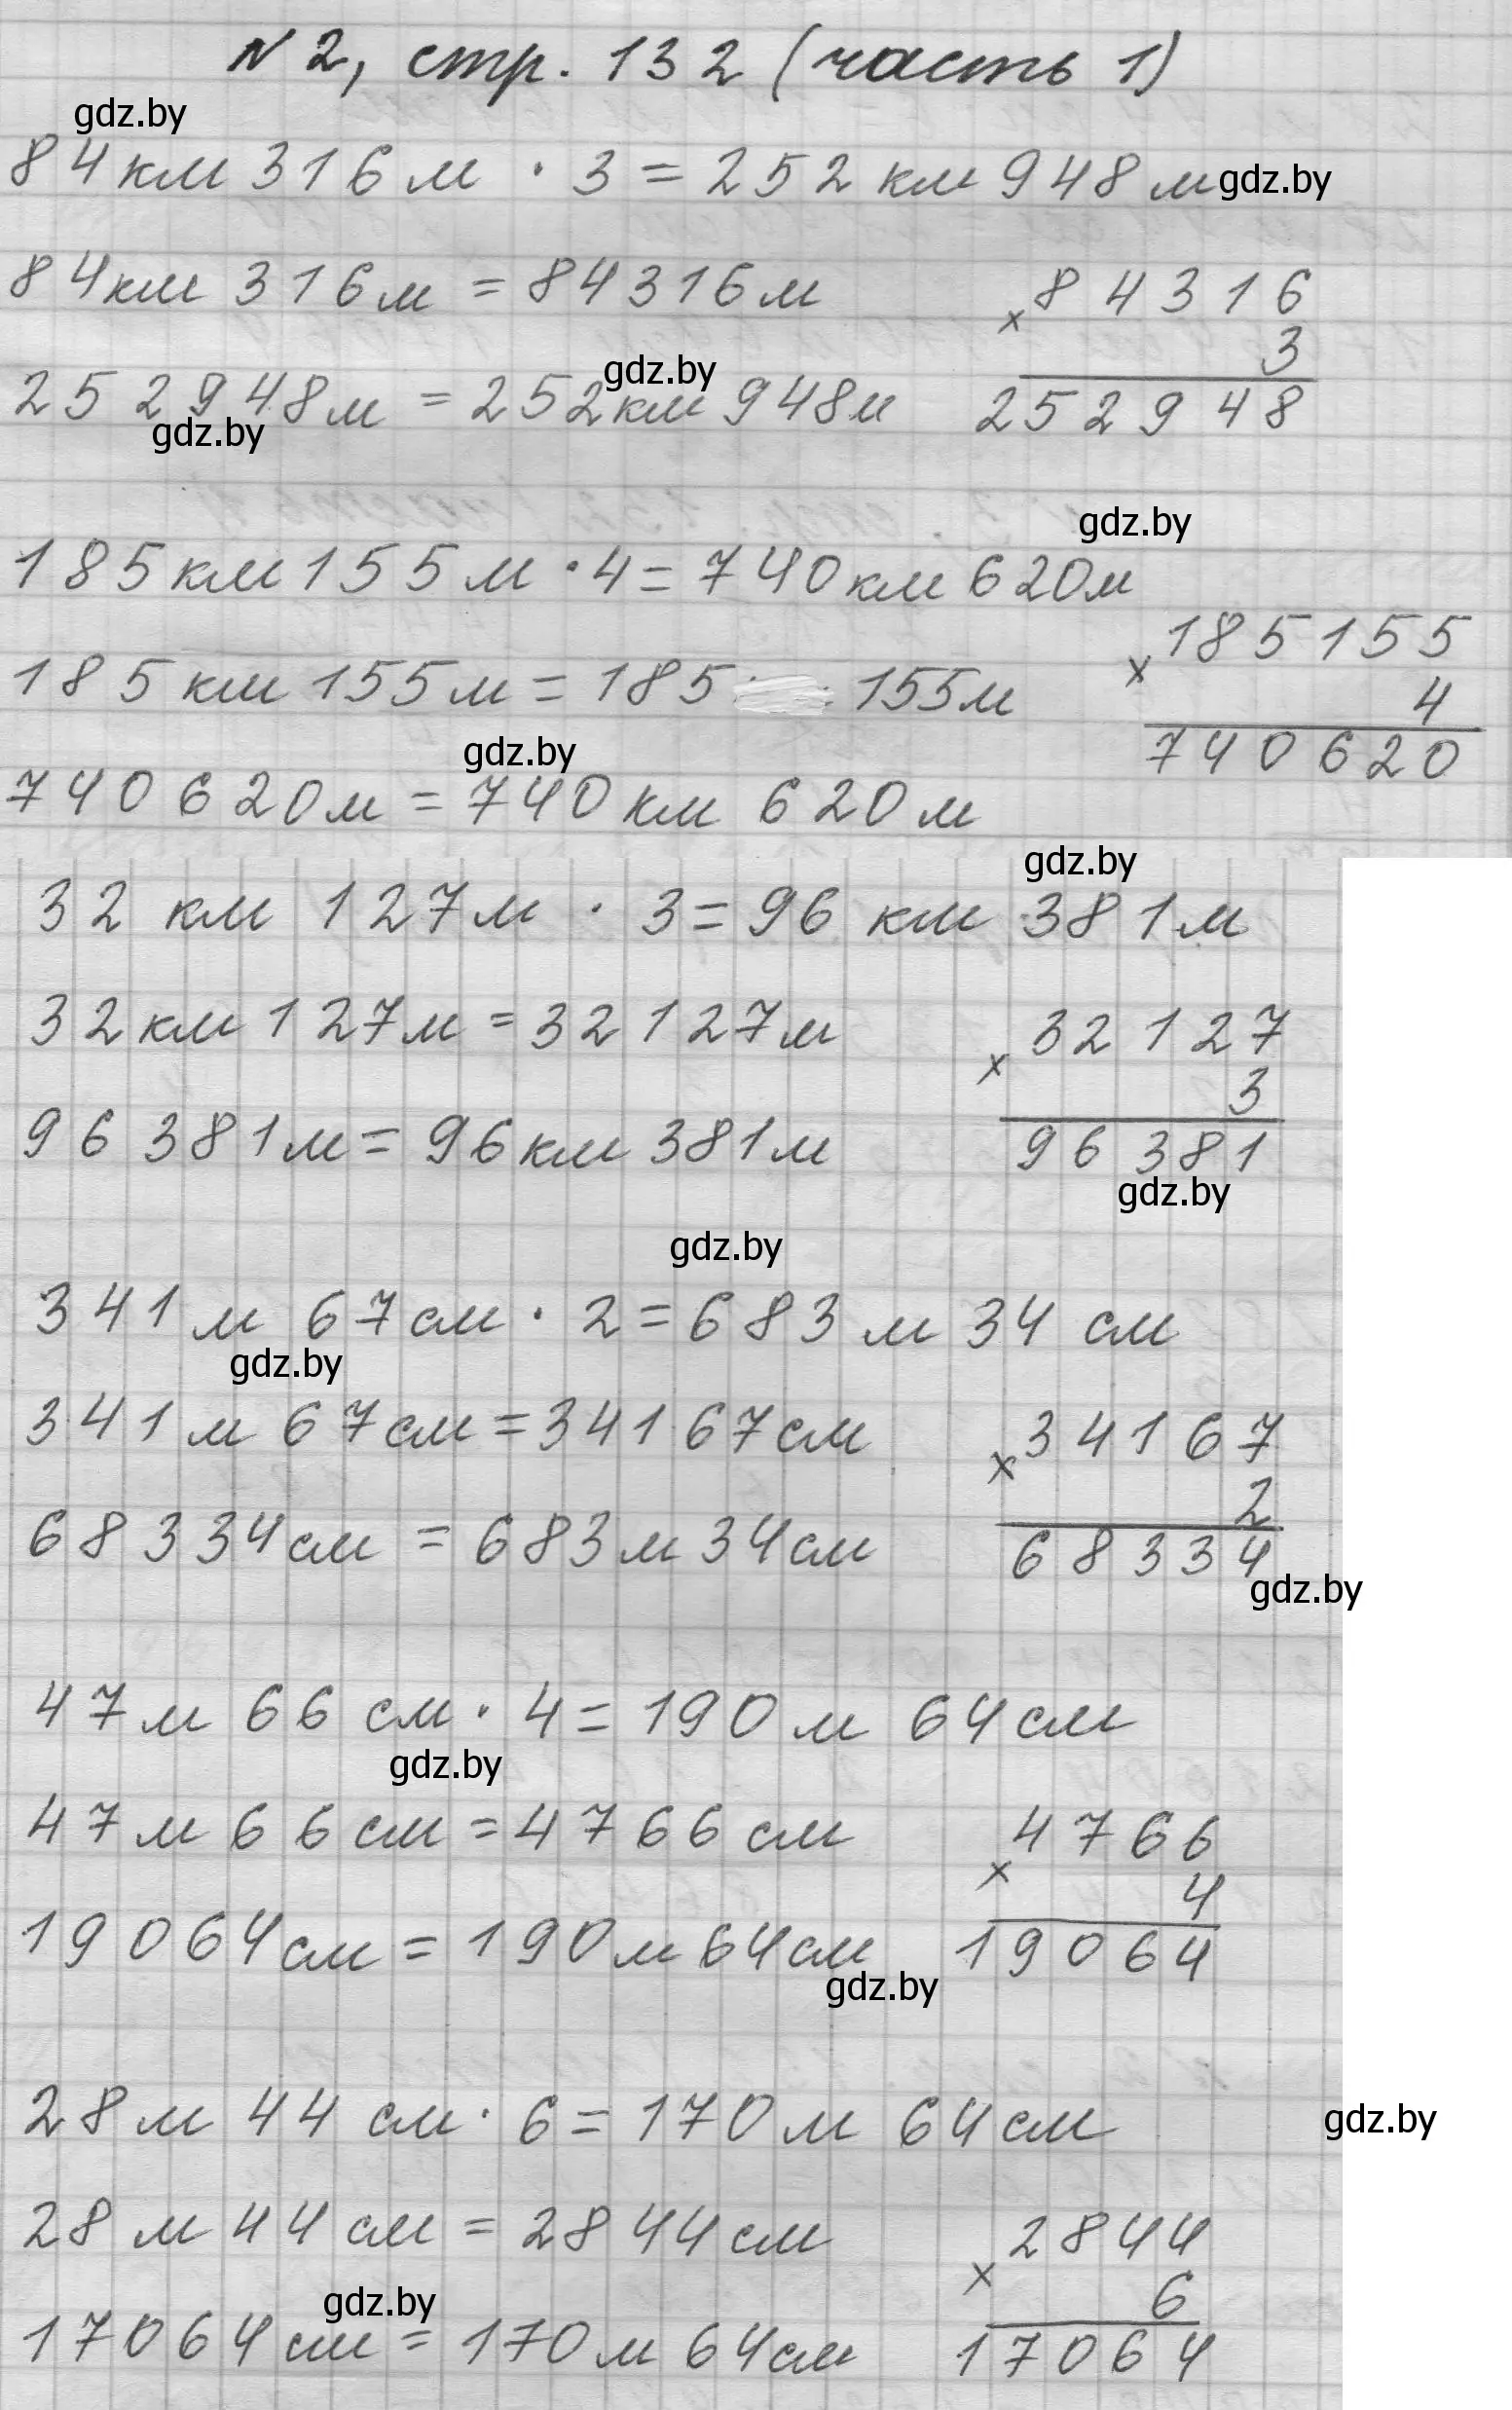 N 2, стр. 132 (часть 1)
gdz.by
84 км 316 м · 3 = 252 км 948 м gdz.by
84 км 316 м = 84316 м
× 84316
3
gdz.by
252948 м = 252 км 948 м
252948
gdz.by
gdz.by
185 км 155 м · 4 = 740 км 620 м
× 185155
4
185 км 155 м = 185 155 м
740620
gdz.by
740 620 м = 740 км 620 м
gdz.by
32 км 127 м · 3 = 96 км 381 м
32 км 127 м = 32 127 м
× 32127
3
96 381 м = 96 км 381 м
96381
gdz.by
gdz.by
341 м 67 см · 2 = 683 м 34 см
gdz.by
341 м 67 см = 34167 см
× 34167
2
68334 см = 683 м 34 см
68334
gdz.by
47 м 66 см · 4 = 190 м 64 см
gdz.by
47 м 66 см = 4766 см
× 4766
4
19064 см = 190 м 64 см
19064
gdz.by
28 м 44 см · 6 = 170 м 64 см
gdz.by
28 м 44 см = 2844 см
× 2844
6
gdz.by
17064 см = 170 м 64 см
17064